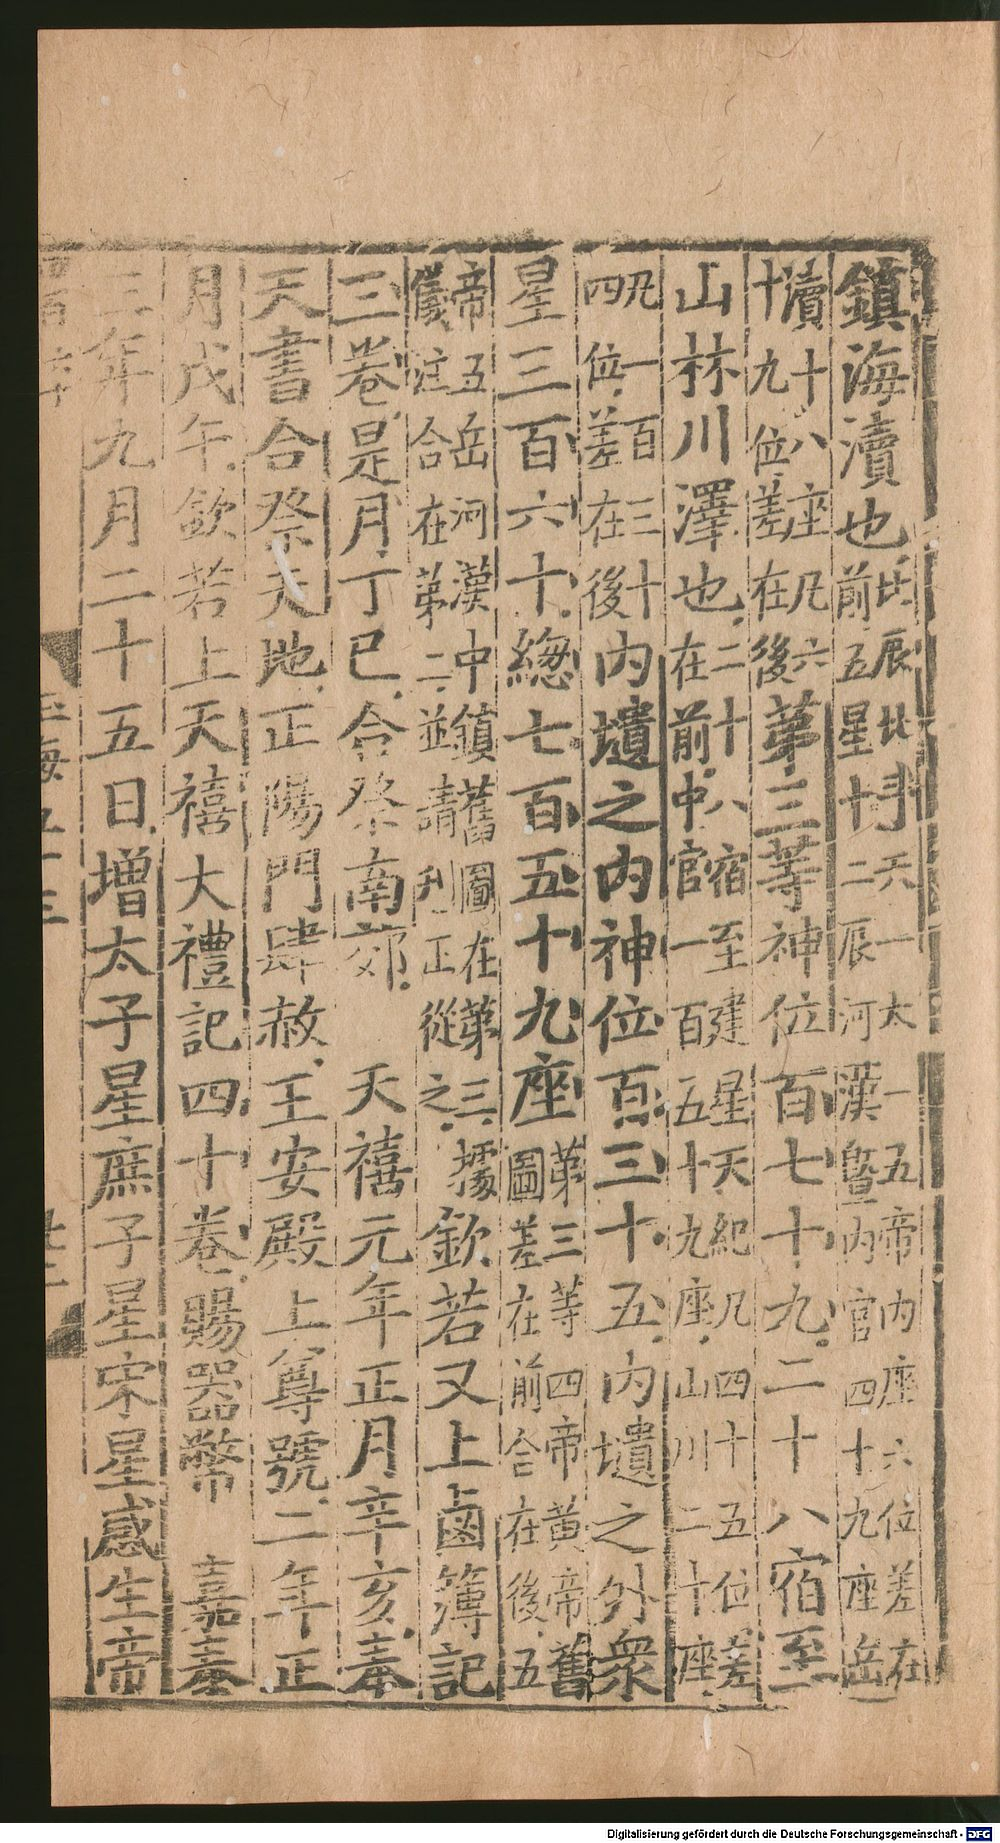 鎮海瀆也北辰北斗天一太一五帝內座六位差在前五星十二辰河漢曁內官四十九座岳
瀆十八座凡六十九位差在後第三等神位百七十九二十八宿至
山林川澤也二十八宿至建星天紀凡四十五位差在前中官一百五十九座山川二十座
凡一百三十四位差在後內壝之內神位百三十五內壝之外衆
星三百六十緫七百五十九座第三等四帝黃帝舊圖差在前合在後五
帝五岳河漢中鎮舊圖在第三據儀注合在第二並請刋正從之欽若又上鹵簿記
三卷是月丁巳合祭南郊　天禧元年正月辛亥奉
天書合祭天地正陽門肆赦王安殿上尊號二年正
月戊午欽若上天禧大禮記四十卷賜器幣　嘉泰
三年九月二十五日增太子星庶子星宋星感生帝
Digitalisierung gefördert durch die Deutsche Forschungsgemeinschaft - DFG